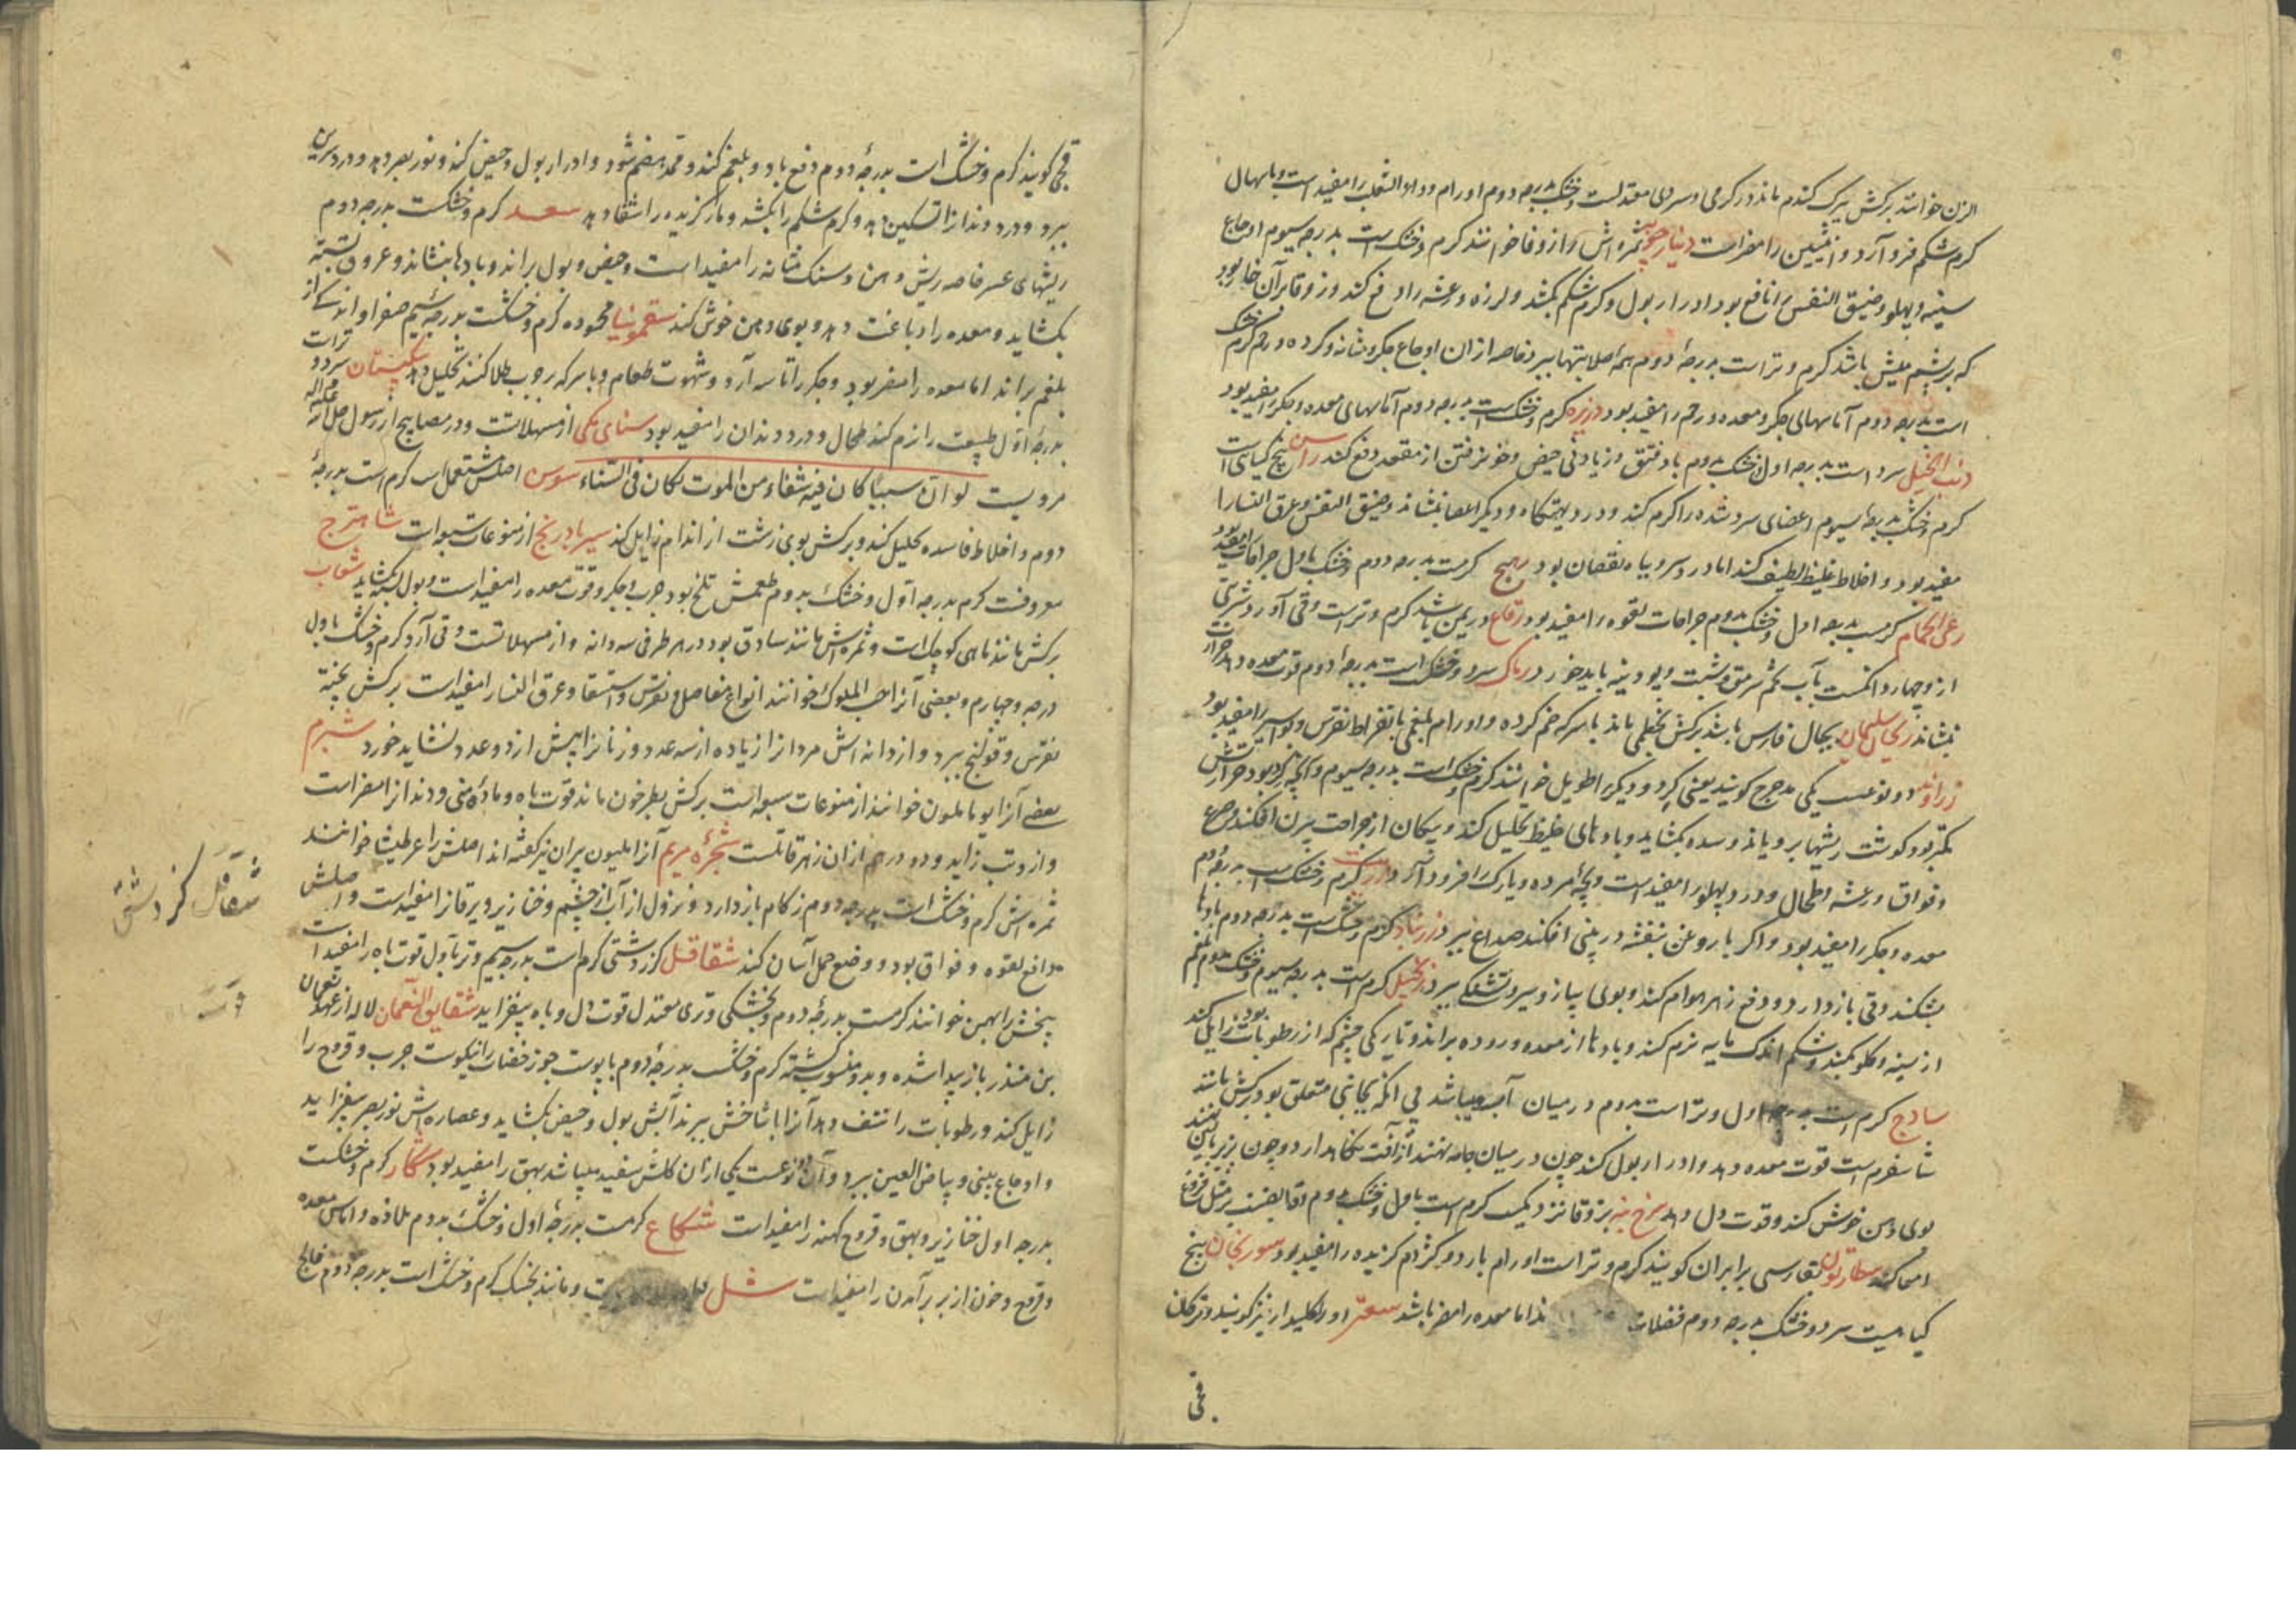 الزن خوانند برکش ببرک کندم ماند در کرمی و سردی معتدلست و خشک بدرجه دوم اورام و داء الثعلب را مفید است و با سهال
کرم شکم فرو آرد و انثیین را مضر است دینارجویه ثمره اش را زوفا خوانند کرم و خشک است بدرجه سیوم اوجاع
سینه و پهلو و ضیق النفس را نافع بود ادرار بول و کرم شکم بکشد و لرزه و رعشه را دفع کند
که بر پشم میش باشد کرم و تر است بدرجهٔ دوم همه صلابتها ببرد خاصه از ان اوجاع جکر و مثانه و کرده و رحم
است بدرجه دوم آماسهای جکر و معده و رحم را مفید بود کرم و خشک است بدرجه دوم آماسهای معده و جکر را مفید بود
ذنب الخیل سرد است بدرجه اول خشک بدوم باد فتق و زیادتی حیض و خون رفتن از مقعد دفع کند راسن بیخ کیاهی است
کرم و خشک بدرجه سیوم اعضای سرد شده را کرم کند و درد پشتکاه و دیکر اعضا بنشاند و ضیق النفس و عرق النسا را
مفید بود و اخلاط غلیظ لطیف کند اما درد سر و باه نقصان بود کرمست بدرجه دوم و خشک باول جراحات را مفید بود
رعی الحمام کرمست بدرجه اول و خشک بدوم جراحات لقوه را مفید بود رقاع در یمن باشد کرم و تر است و قی آورد شربتی
ازو چهار دانکست بآب تخم سرمق و شبت و پودینه باید خورد رامک سرد و خشک است بدرجه دوم قوت معده دهد حرارت
بنشاند بجبال فارس باشد برکش بخطمی ماند با سرکه ضم کرده و اورام بلغمی با نقرس و بواسیر را مفید بود
زراوند دو نوعست یکی مدحرج کویند یعنی کرد و دیکر را طویل خوانند کرم و خشک است بدرجه سیوم و آنچه کرد بود حرارتش
کمتر بود کوشت ریشها برویاند و سده بکشاید و بادهای غلیظ تحلیل کند و پیکان از جراحت بیرون افکند و صرع
و فواق و رعشه و طحال و درد پهلو را مفید است و بچه مرده را فرود آرد کرم و خشک است بدرجه دوم
معده و جکر را مفید بود و اکر با روغن بنفشه در بینی افکند صداع ببرد زرنباد کرم و خشک است بدرجه دوم بادها
بشکند و قی باز دارد و دفع زهر هوام کند و بوی پیاز و سیر و تشنکی ببرد زنجبیل کرم است بدرجه سیوم و خشک بدوم بلغم
از سینه و کلو بکند و شکم اندک مایه نرم کند و بادها از معده و روده براند و تاریکی چشم که از رطوبات بود زایل کند
سادج کرم است بدرجه اول و تر است بدوم در میان آب میباشد بی آنکه بجائی متعلق بود برکش مانند
شاسفرم است قوت معده دهد و ادرار بول کند چون در میان جامه نهند از آفت نکاهدارد و چون بزیر زبان نهند
بوی دهن خوش کند و قوت دل دهد کرم است باول و خشک بدوم
بفارسی برابران کویند کرم و تر است اورام بارد و کژدم کزیده را مفید بود سورنجان بیخ
کیاهیست سرد و خشک بدرجه دوم فضلات اما معده را مضر باشد سعتر او را کلیدار نیز کویند و ترکان
قجی
قجی کویند کرم و خشک است بدرجهٔ دوم دفع باد و بلغم کند و ممد هضم شود و ادرار بول و حیض کند و نور بصر دهد و درد سرین
ببرد و درد دندان را تسکین دهد و کرم شکم را بکشد و مار کزیده را شفا دهد سعد کرم و خشکست بدرجه دوم
ریشهای عسر خاصه ریش دهن و سنک مثانه را مفید است و حیض و بول براند و بادها بنشاند و عروق بسته
بکشاید و معده را دباغت دهد و بوی دهن خوش کند سقمونیا محموده کرم و خشکست بدرجه سیم صفرا و اندکی از
بلغم براند اما معده را مضر بود و جکر را تاسه آرد و شهوت طعام و با سرکه بر جرب طلا کنند تحلیل دهد سپستان سرد و تر است
بدرجهٔ اول طبیعت را نرم کند طحال و درد دندان را مفید بود سنای مکی از مسهلاتست و در مصابیح از رسول صلی الله علیه و اله
مرویست لو ان سببا کان فیه شفاء من الموت لکان فی السناء سوس اصلش مستعملست کرم است بدرجهٔ
دوم و اخلاط فاسده تحلیل کند و برکش بوی زشت از اندام زایل کند سیر بادرنج از متوعات سبعه است شاهترج
معروفست کرم بدرجه اول و خشک بدوم طعمش تلخ بود جرب و جکر و قوت معده را مفید است و بول بسته بکشاید شباب
برکش مانند ماهی کوچک است و ثمره اش مانند سادق بود در هر طرفی سه دانه و از مسهلاتست و قی آرد کرم و خشک باول
درجه چهارم و بعضی آنرا حب الملوک خوانند انواع مفاصل و نقرس و استسقا و عرق النسا را مفید است برکش پخته
نقرس و قولنج ببرد و از دانه اش مردان زیاده از سه عدد و زنانرا بیش از دو عدد نشاید خورد شبرم
بعضی آنرا خوانند از متوعات سبعه است برکش بطرخون ماند قوت باه و مادهٔ منی و دندانرا مضر است
و ازو تب زاید و دو درهم ازان زهر قاتلست شجرهٔ مریم آنرا ملیون پیران نیز کفته اند اصلش را عرطنیثا خوانند
ثمره اش کرم و خشک است بدرجه دوم زکام باز دارد و نزول از آب از چشم و خنازیر و یرقانرا مفید است و اصلش
دافع لقوه و فواق بود و وضع حمل آسان کند شقاقل کزر دشتی کرم است بدرجه سیم و تر باول قوت باه را مفید است
بیخش را بهمن خوانند کرمست بدرجهٔ دوم و بخشکی و تری معتدل قوت دل و باه بیفزاید شقایق النعمان لاله از عهد نعمان
بن منذر باز پیدا شده و بدو منسوب کشته کرم و خشک بدرجهٔ دوم با پوست جوز خضاب را نیکوست جرب و قروح را
زایل کند و رطوبات را نشف دهد آنرا با شاخش ببزند آبش بول و حیض بکشاید و عصاره اش نور بصر بیفزاید
و اوجاع بینی و بیاض العین ببرد و آن دو نوعست یکی از ان کلش سفید میباشد بهق را مفید بود شنکار کرم و خشکست
بدرجه اول خنازیر و بهق و قروح کهنه را مفید است شکاع کرمست بدرجهٔ اول و خشک بدوم ملازه و اماس معده
و قروح و خون از بر برآمدن را مفید است شل و مانند بخسک کرم و خشک است بدرجه دوم فالج
شقاقل کزر دشتی